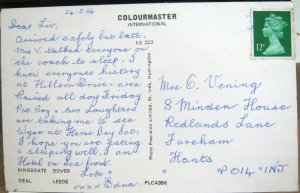 24-5-86
COLOURMASTER
INTERNATIONAL
KE 223
Dear Liv,
Arrived safely but late.
Mrs V. talked everyone on
the coach to sleep - I
know everyones history
at Hillson Drive area
Rained all day Friday
Pat Roy & two Laughters
are taking me to see
Wyse at Herne Bay Sat:
I hope you are eating
& sleeping well, and
Hotel on sea front.
KINGSGATE DOVER
Love
DEAL LEEDS
xxxx Edna.
PLC4386
Photo Precision Limited, St. Ives, Huntingdon
12P
Mrs G. Vening
8 Minden House
Redlands Lane
Fareham
Hants
PO14 1NJ